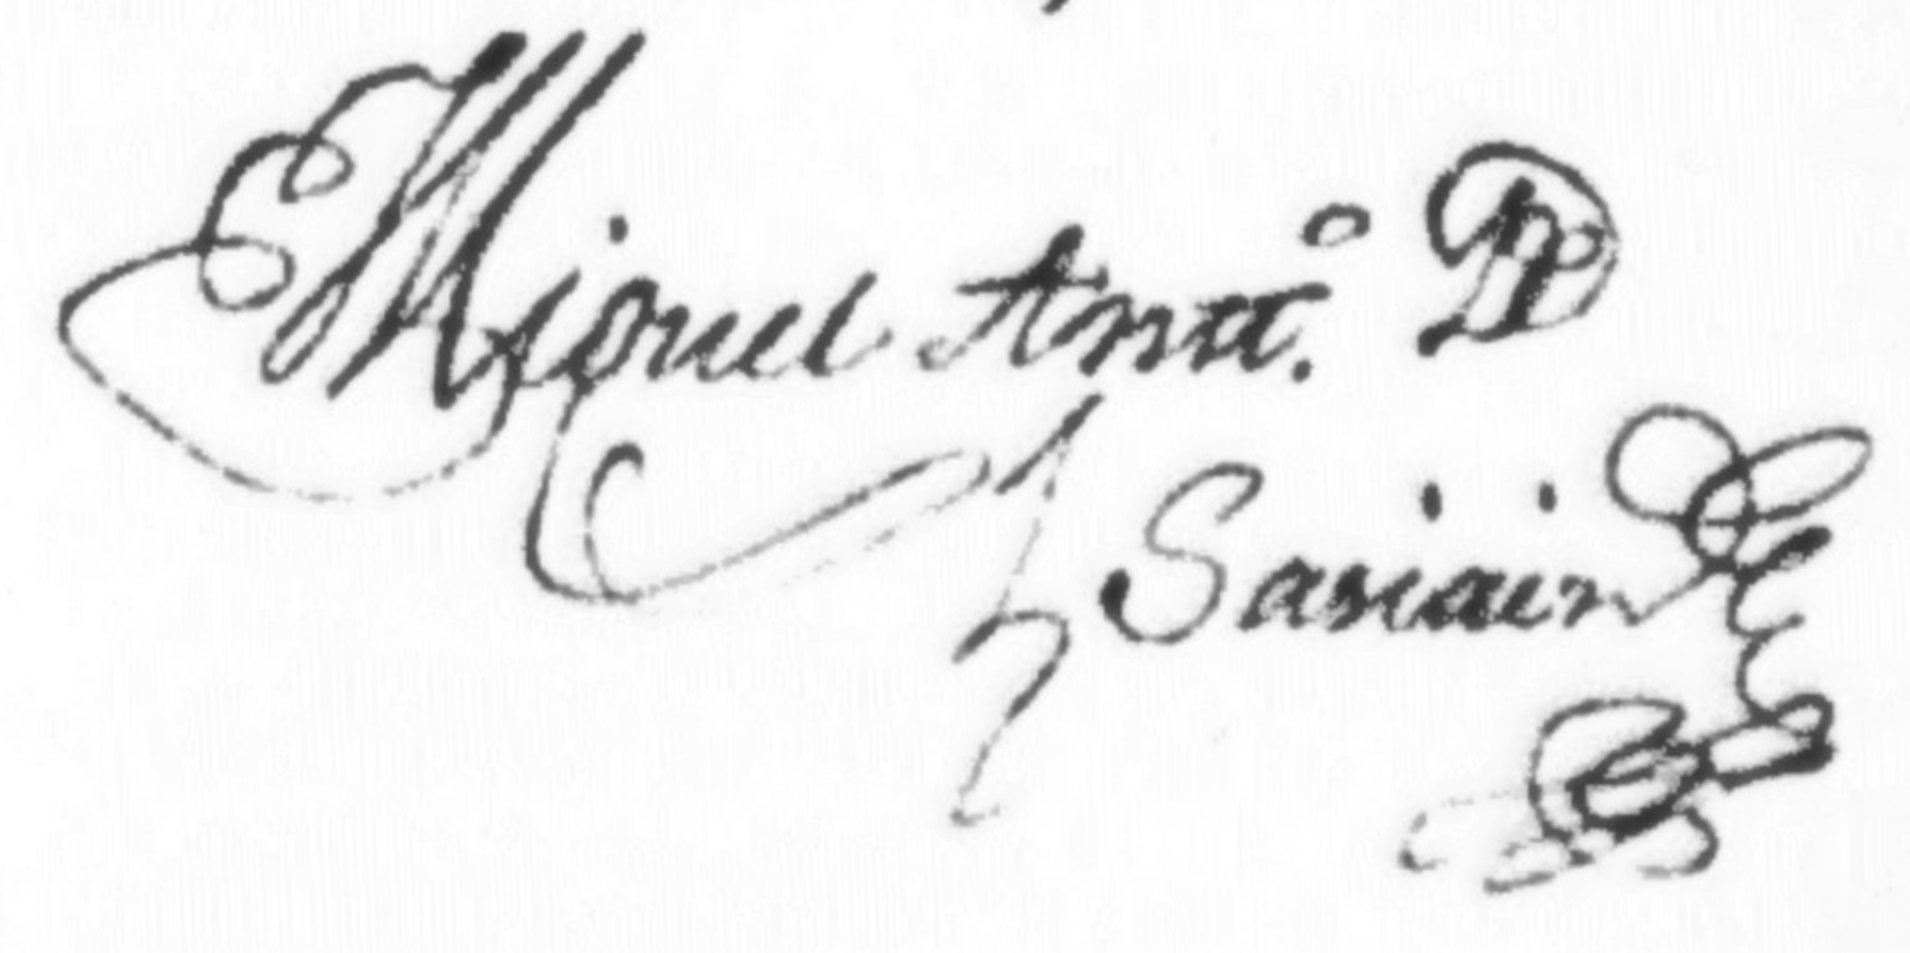 Miguel Antt.º
y Sasiain